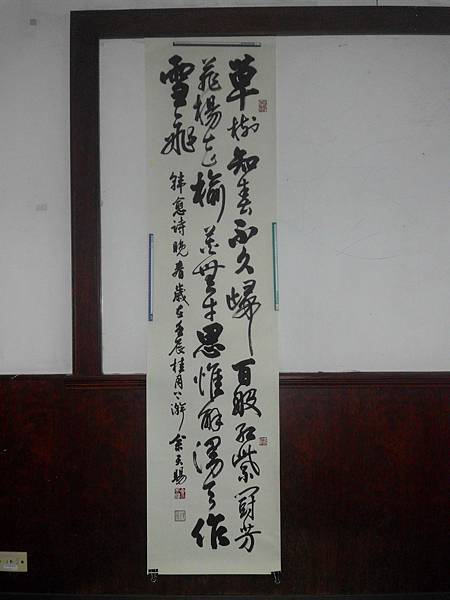 草樹知春不久歸百般紅紫鬪芳
菲楊花榆莢無才思惟解漫天作
雪飛
韓愈詩晚春歲在壬辰桂月上澣余天賜